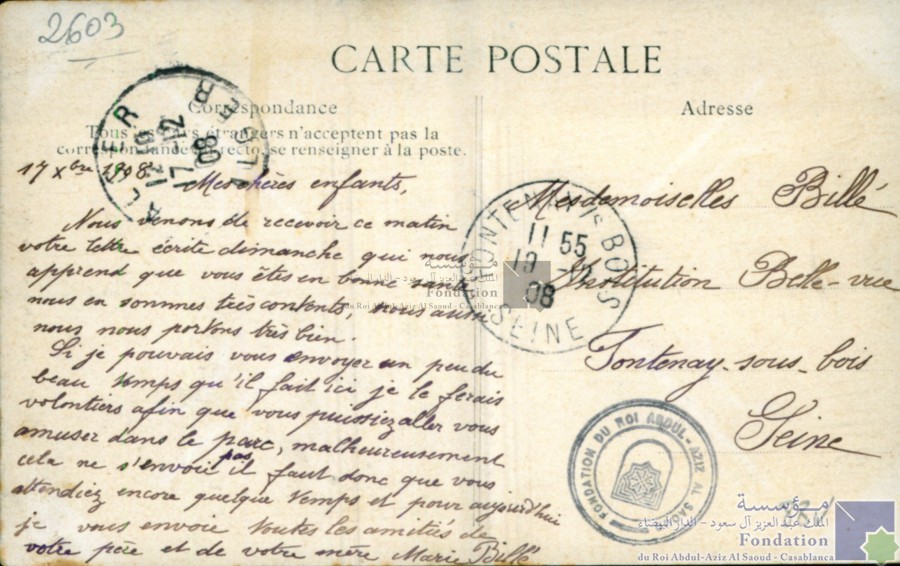 2603
CARTE POSTALE
Correspondance
Tous les pays étrangers n'acceptent pas la
correspondance au recto, se renseigner à la poste.
Adresse
ALGER
17 -12
08
17 Xbre 1908
Mes chères enfants,
Nous venons de recevoir ce matin
votre lettre écrite dimanche qui nous
apprend que vous êtes en bonne santé
nous en sommes très contents, nous aussi
nous nous portons très bien.
Si je pouvais vous envoyer un peu du
beau temps qu'il fait ici je le ferais
volontiers afin que vous puissiez aller vous
amuser dans le parc, malheureusement
cela ne s'envoie pas il faut donc que vous
attendiez encore quelque temps et pour aujourd'hui
je vous envoie toutes les amitiés de
votre père et de votre mère Marie Billé
Mesdemoiselles Billé
Institution Belle-vue
Fontenay-sous-bois
Seine
FONTENAY Ss BOIS
11 55
19 12
08
SEINE
FONDATION DU ROI ABDUL-AZIZ AL SAOUD
مؤسسة
الملك عبد العزيز آل سعود - الدار البيضاء
Fondation
du Roi Abdul-Aziz Al Saoud - Casablanca
مؤسسة
الملك عبد العزيز آل سعود - الدار البيضاء
Fondation
du Roi Abdul-Aziz Al Saoud - Casablanca